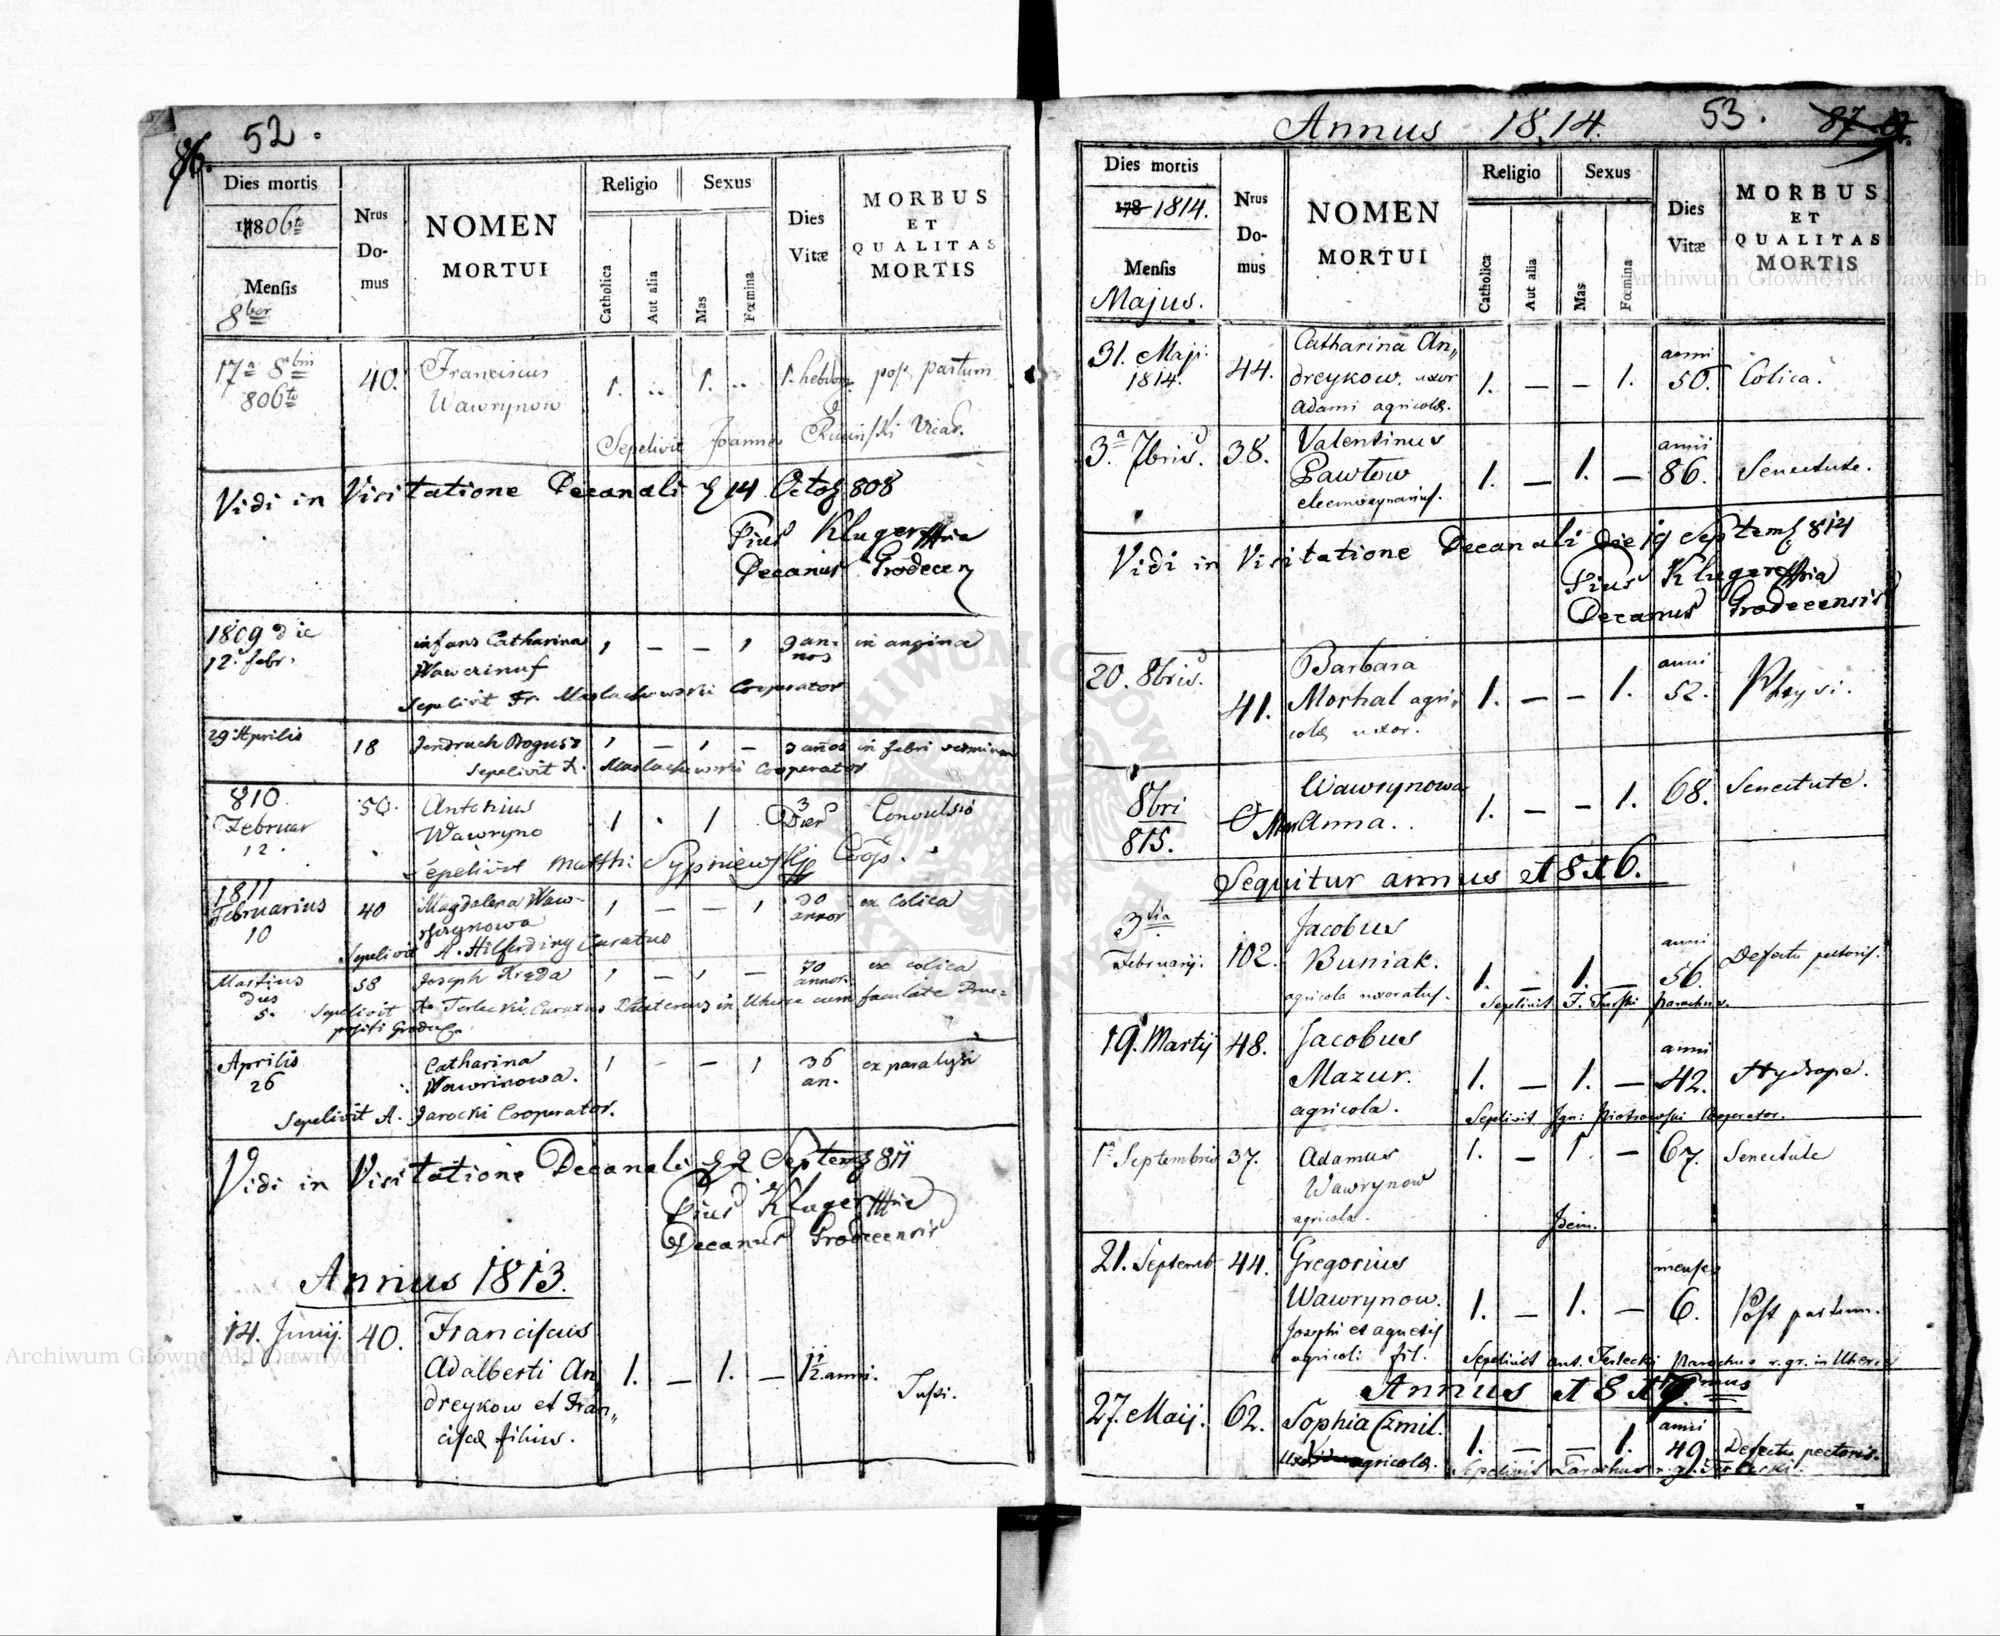 52.
86.
Dies mortis
1806to
Mensis
8ber
Nrus
Do-
mus
NOMEN
MORTUI
Religio
Catholica
Aut alia
Sexus
Mas
Fœmina
Dies
Vitæ
MORBUS
ET
QUALITAS
MORTIS
17a 8bris
806to
40.
Franciscus
Wawrynow
1. .. 1. ..
1. hebdom.
post partum
Sepelivit Joannes Viar.
Vidi in Visitatione Decanali 14 Octob 808
Pius Kluger
Decanus Grodecen
1809 die
12. febr.
infans Catharina
Wawerinuf
1 — — 1
9 an-
nos
in angina
Sepelivit Fr Maslachowski Cooperator
29 Aprilis
18
Jendruch Bogusz
1 — 1 —
3 annos
in febri
Sepelivit Maslachowski Cooperator
810.
Februar
12.
50.
Antonius
Wawryno
1 . 1
3
Dies
Convulsio
Sepelivit Matth: Sypniewski Coop.
1811
Februarius
10
40
Magdalena Waw-
rzynowa
1 — — 1
30
annor
ex Colica
Sepelivit A. Hilferding Curatus
Martius
dies
5.
58
Joseph Kręda
1 — 1 —
70
annor.
ex colica
Sepelivit Terlecki Curatus in Uherce cum facultate
positi
Aprilis
26
Catharina
Wawrinowa.
1 - — 1
36
an.
ex paralysi
Sepelivit A. Jarocki Cooperator.
Vidi in Visitatione Decanali 2 Septemb 811
Pius Kluger
Decanus Grodecensis
Annus 1813.
14. Junij.
40.
Franciscus
Adalberti An,,
dreykow et Fran,,
ciscæ filius.
1. — 1. —
1 1/2 anni.
Tussi.
Annus 1814.
53.
87
Dies mortis
178 1814.
Mensis
Majus.
Nrus
Do-
mus
NOMEN
MORTUI
Religio
Catholica
Aut alia
Sexus
Mas
Fœmina
Dies
Vitæ
MORBUS
ET
QUALITAS
MORTIS
31. Maji
1814.
44.
Catharina An,,
dreykow. uxor
Adami agricolæ.
1. — — 1.
anni
50.
Colica.
3a 7bris.
38.
Valentinus
Pawłow
eleemosynarius.
1. — 1. —
anni
86.
Senectute.
Vidi in Visitatione Decanali Die 19 Septemb 814
Pius Kluger
Decanus Grodecensis
20. 8bris.
41.
Barbara
Morhal agri,,
colæ uxor.
1. — — 1.
anni
52.
Phtysi.
8bri
815.
Wawrynowa
Anna.
1. — — 1.
68.
Senectute.
Sequitur annus 1816.
3tia
Februarij.
102.
Jacobus
Buniak.
agricola uxoratus.
1. — 1. —
anni
56.
Defectu pectoris.
Sepelivit F. Turski Parochus.
19. Martij
48.
Jacobus
Mazur.
agricola.
1. — 1. —
anni
42.
Hydrope.
Sepelivit Ign: Piotrowski Cooperator.
1a Septembris
37.
Adamus
Wawrynow
agricola.
1. — 1. —
67.
Senectute
Idem.
21. Septemb
44.
Gregorius
Wawrynow.
Josephi et Agnetis
agricoli fil.
1. — 1. —
menses
6.
Post partum.
Sepelivit Ant. Terlecki Parochus r. gr. in Uherce
Annus 1817mus
27. Maij.
62.
Sophia Czmil.
agricolæ.
1. — — 1.
anni
49
Defectu pectoris.
Sepelivit Parochus r. g. Terlecki.
Archiwum Główne Akt Dawnych
Archiwum Główne Akt Dawnych